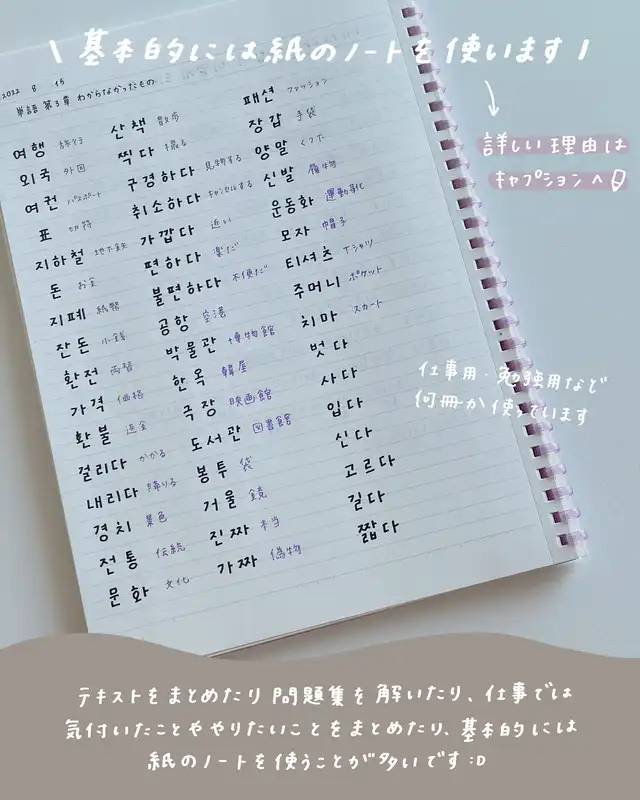 \ 基本的には紙のノートを使います /
詳しい理由は
キャプションへ
2022 8 15
単語 第3章 わからなかったもの
여행 旅行
외국 外国
여권 パスポート
표 切符
지하철 地下鉄
돈 お金
지폐 紙幣
잔돈 小銭
환전 両替
가격 価格
환불 返金
걸리다 かかる
내리다 降りる
경치 景色
전통 伝統
문화 文化
산책 散歩
찍다 撮る
구경하다 見物する
취소하다 キャンセルする
가깝다 近い
편하다 楽だ
불편하다 不便だ
공항 空港
박물관 博物館
한옥 韓屋
극장 映画館
도서관 図書館
봉투 袋
거울 鏡
진짜 本当
가짜 偽物
패션 ファッション
장갑 手袋
양말 くつ下
신발 履物
운동화 運動靴
모자 帽子
티셔츠 Tシャツ
주머니 ポケット
치마 スカート
벗다
사다
입다
신다
고르다
길다
짧다
仕事用・勉強用など
何冊か使っています
テキストをまとめたり問題集を解いたり、仕事では
気付いたことややりたいことをまとめたり、基本的には
紙のノートを使うことが多いです:D